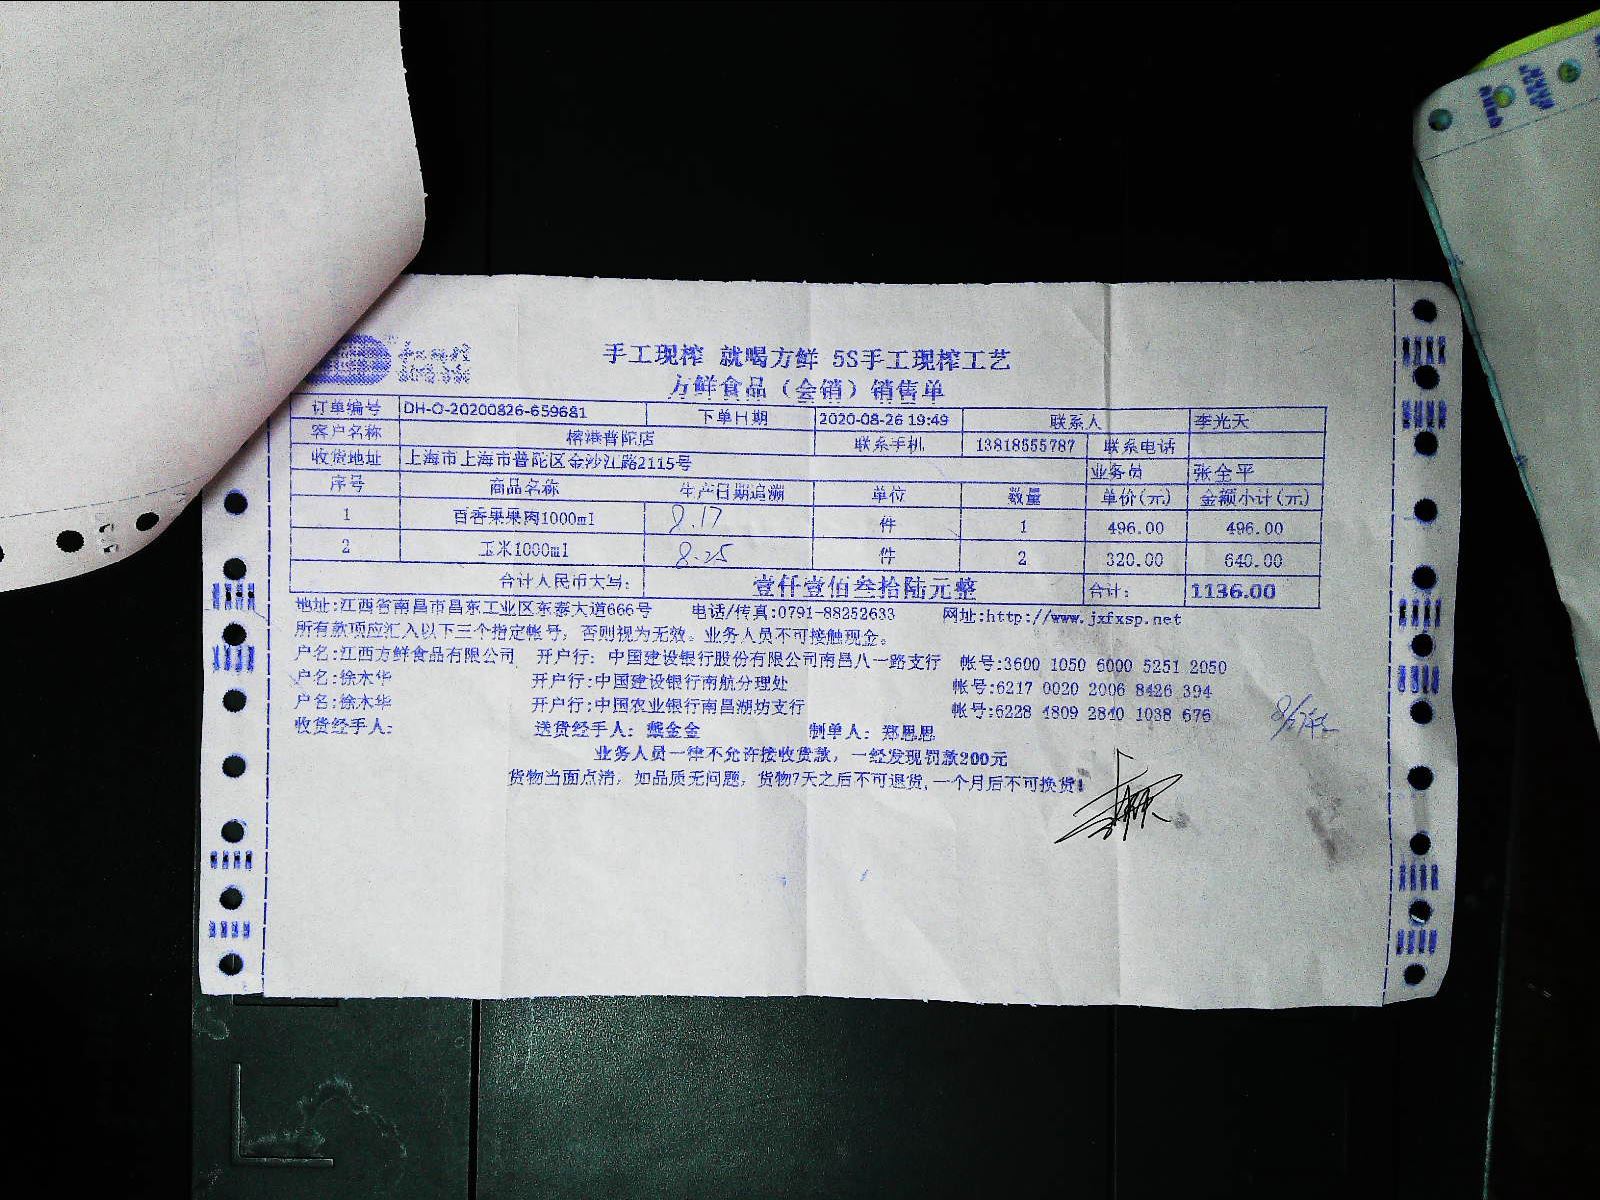 手工现榨 就喝方鲜 5S手工现榨工艺
方鲜食品（会销）销售单
订单编号 DH-O-20200826-659681 下单日期 2020-08-26 19:49 联系人 李光天
客户名称 榕港普陀店 联系手机 13818555787 联系电话
收货地址 上海市上海市普陀区金沙江路2115号 业务员 张全平
序号 商品名称 生产日期追溯 单位 数量 单价(元) 金额小计(元)
1 百香果果肉1000ml 8.17 件 1 496.00 496.00
2 玉米1000ml 8.25 件 2 320.00 640.00
合计人民币大写: 壹仟壹佰叁拾陆元整 合计: 1136.00
地址:江西省南昌市昌东工业区东泰大道666号 电话/传真:0791-88252633 网址:http://www.jxfxsp.net
所有款项应汇入以下三个指定帐号，否则视为无效。业务人员不可接触现金。
户名:江西方鲜食品有限公司 开户行: 中国建设银行股份有限公司南昌八一路支行 帐号:3600 1050 6000 5251 2050
户名:徐木华 开户行:中国建设银行南航分理处 帐号:6217 0020 2006 8426 394
户名:徐木华 开户行:中国农业银行南昌湖坊支行 帐号:6228 4809 2840 1038 676
收货经手人: 送货经手人: 戴金金 制单人: 郑思思
业务人员一律不允许接收货款，一经发现罚款200元
货物当面点清，如品质无问题，货物7天之后不可退货,一个月后不可换货!